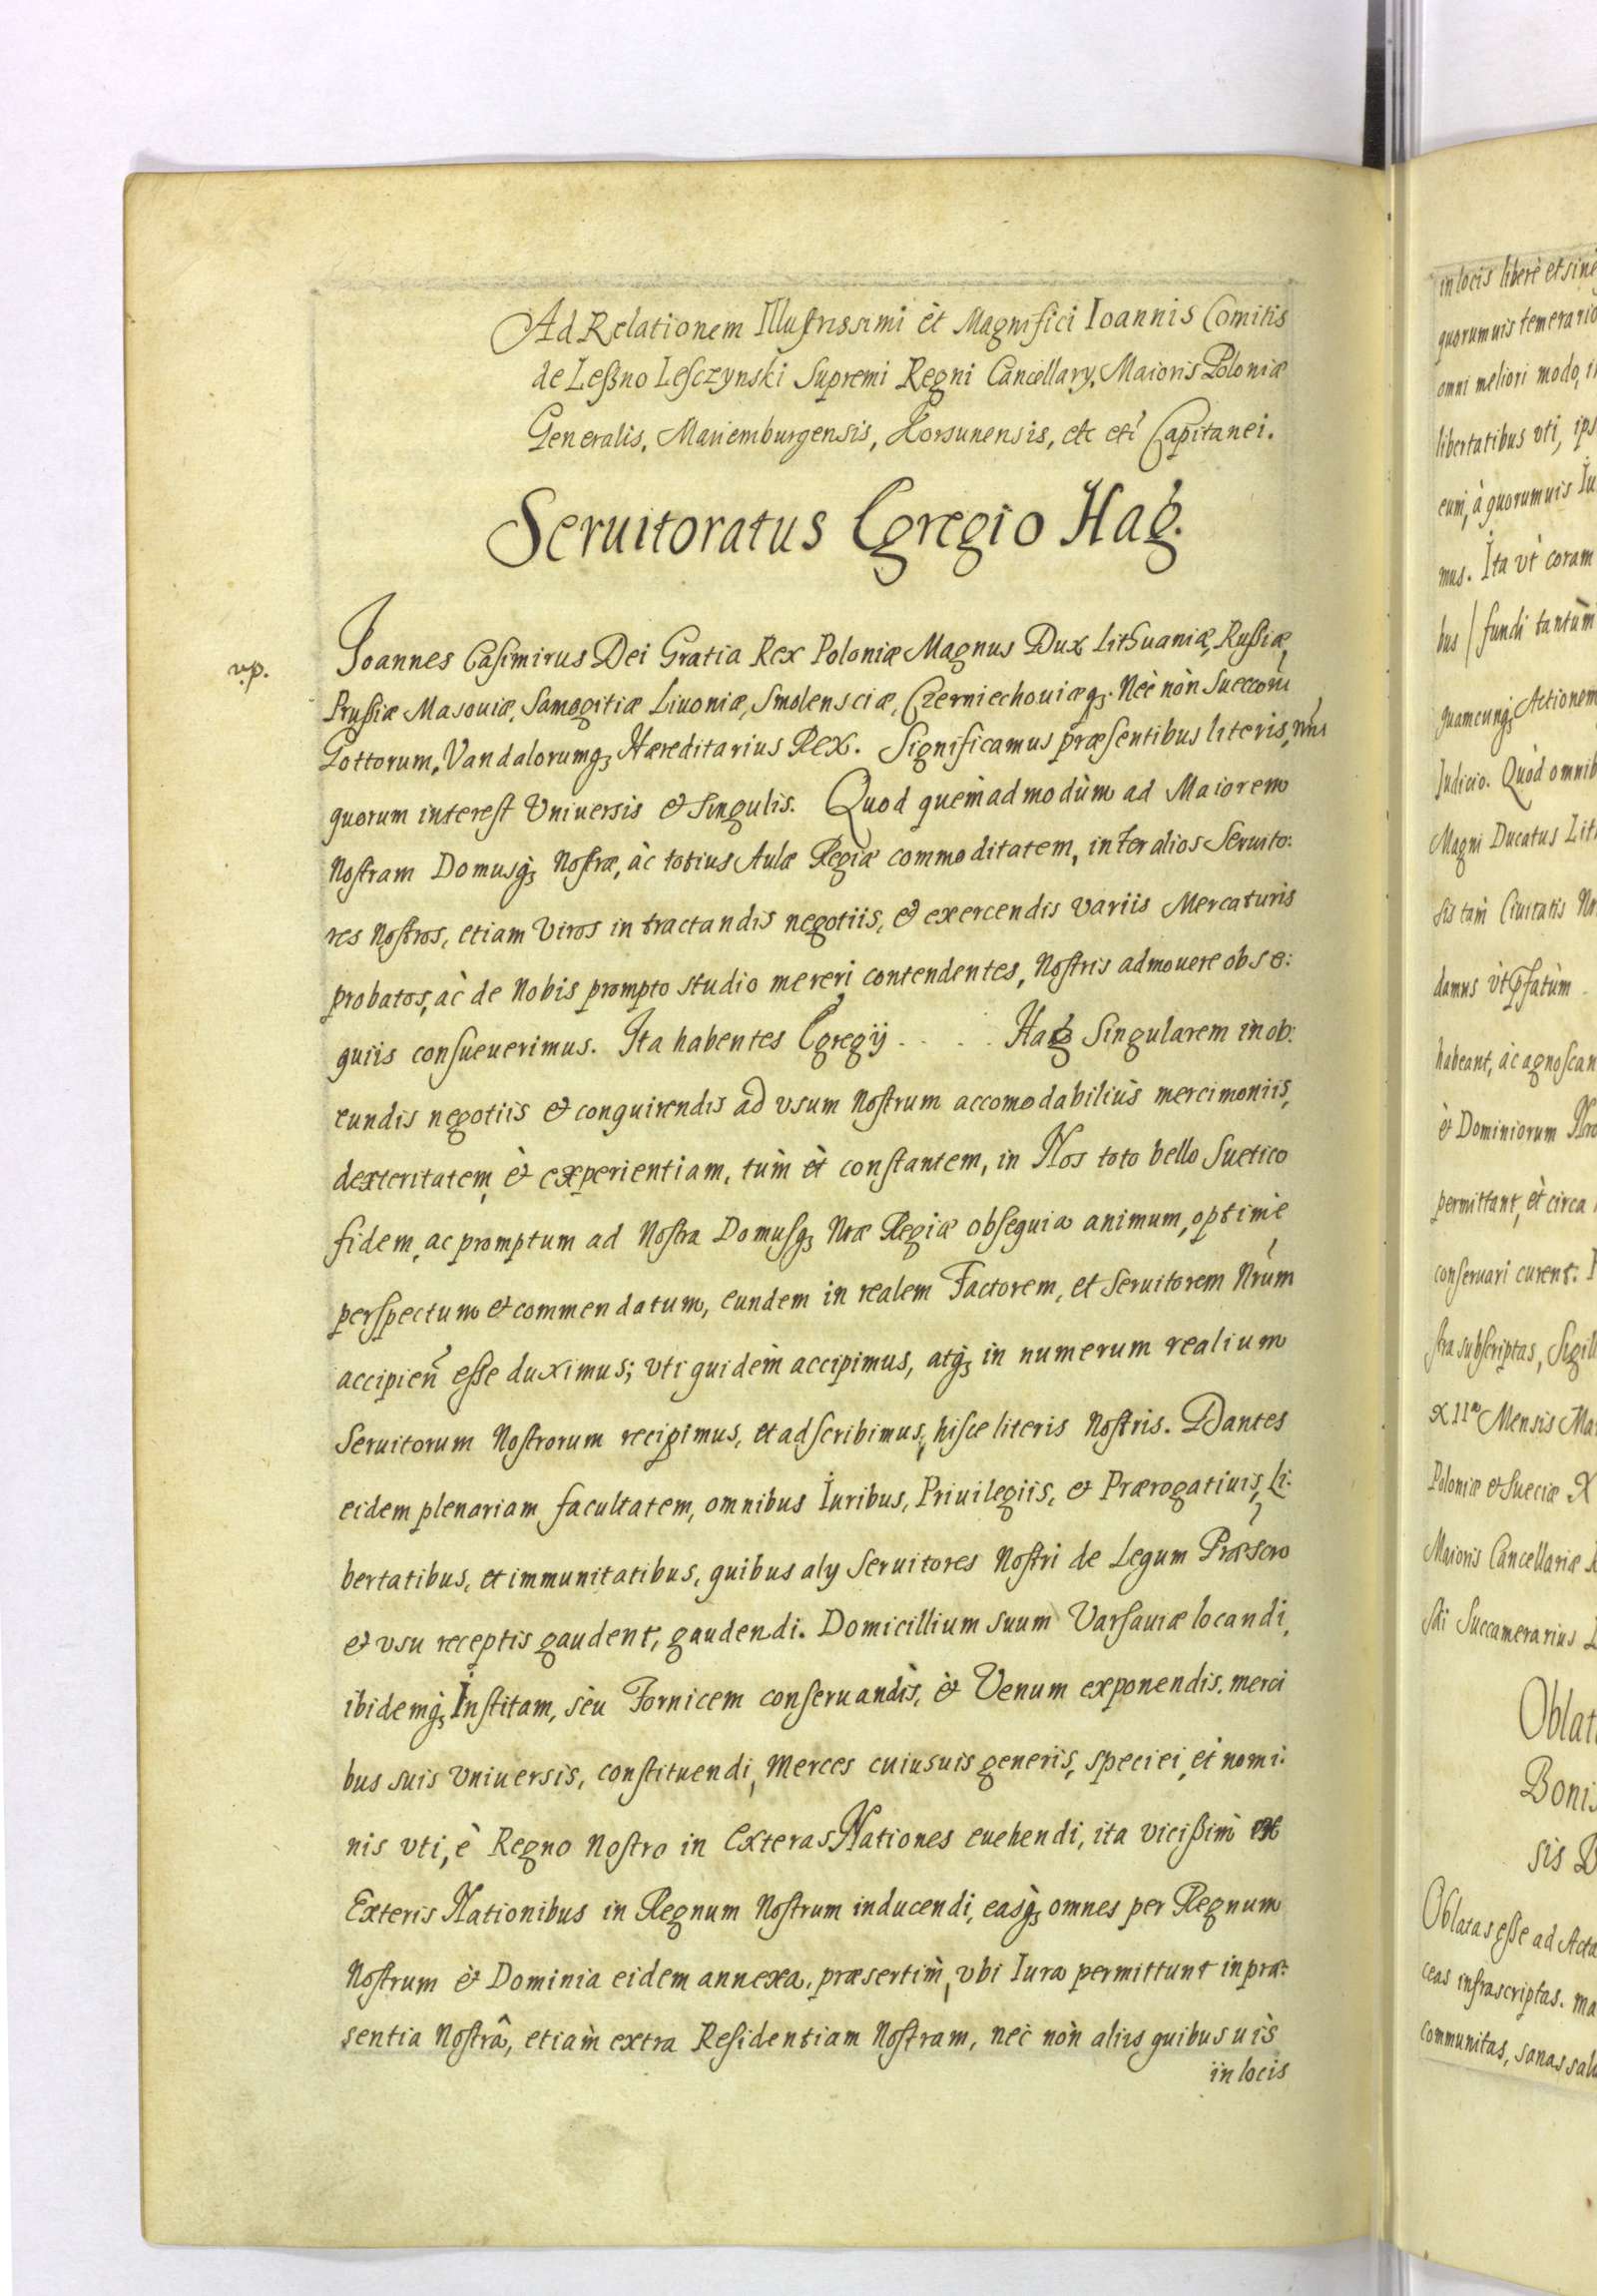 Ad Relationem Illustrissimi èt Magnifici Ioannis Comitis
de Leßno Lesczynski Supremi Regni Cancellary, Maioris Poloniæ
Generalis, Mariemburgensis, Korsunensis, etc etc Capitanei.
Seruitoratus Egregio Hag.
v.p.
Joannes Casimirus Dei Gratia Rex Poloniæ Magnus Dux Lithuaniæ, Rußiæ,
Prußiæ Masouiæ, Samogitiæ Liuoniæ, Smolensciæ, Czerniechouiæq₃. Nèc nòn Sueccorũ
Gottorum, Vandalorumq₃ Hæreditarius Rex. Significamus præsentibus literis,
quorum interest Vniuersis & singulis. Quod quemàdmodùm ad Maiorem
Nostram Domusq₃ Nostræ, àc totius Aulæ Regiæ commoditatem, inter alios Seruito:
res Nostros, etiam Viros in tractandis negotiis, & exercendis variis Mercaturis
probatos, àc de Nobis prompto studio mereri contendentes, Nostris admouere obse:
quiis consueuerimus. Ita habentes Egregÿ . . . . Hag Singularem in ob:
eundis negotiis & conquirendis ad vsum Nostrum accomodabiliùs mercimoniis,
dexteritatem, & experientiam, tùm èt constantem, in Nos toto bello Suetico
fidem, ac promptum ad Nostra Domusq₃ Nræ Regiæ obsequia animum, optimè
perspectum & commendatum, eundem in realem Factorem, et Seruitorem Nrũm
accipieñ esse duximus; vti quidèm accipimus, atq₃ in numerum realium
Seruitorum Nostrorum recipimus, et adscribimus, hisce literis Nostris. Dantes
eidem plenariam facultatem, omnibus Iuribus, Priuilegiis, & Prærogatiuis, Li:
bertatibus, et immunitatibus, quibus alÿ Seruitores Nostri de Legum Præscro
& vsu receptis gaudent, gaudendi. Domicillium suum Varsauiæ locandi,
ibidemq₃ Institam, sèu Fornicem conseruandìs, & Venum exponendis, merci
bus suis vniuersis, constituendi, Merces cuiusuis generis, speciei, et nomi:
nis vti, è Regno Nostro in Exteras Nationes euehendi, ita vicißìm ex
Exteris Nationibus in Regnum Nostrum inducendi, easq₃ omnes per Regnum
Nostrum & Dominia eidem annexa, præsertìm, vbi Iura permittunt in præ:
sentia Nostrâ, etiàm extra Residentiam Nostram, nèc nòn aliis quibusuis
in locis
in locis liberè et sine
quorumuis temerario
omni meliori modo,
libertatibus vti,
eum, à quorumuis
mus. Ita vt coram
bus / fundi tantùm
quamcunq₃ Actionem
Iudicio. Quòd omnib
Magni Ducatus Lit
sis tàm Ciuitatis
damus vt pfatùm
habeant, àc agnoscan
& Dominiorum
permittant, èt circa
conseruari curent.
stra subscriptas, Sigill
XIIa Mensis Ma
Poloniæ & Sueciæ
Maioris Cancellariæ
Succamerarius
Oblat
Bonis
sis
Oblatas esse ad Acta
ceas infrascriptas.
communitas, sanas salu